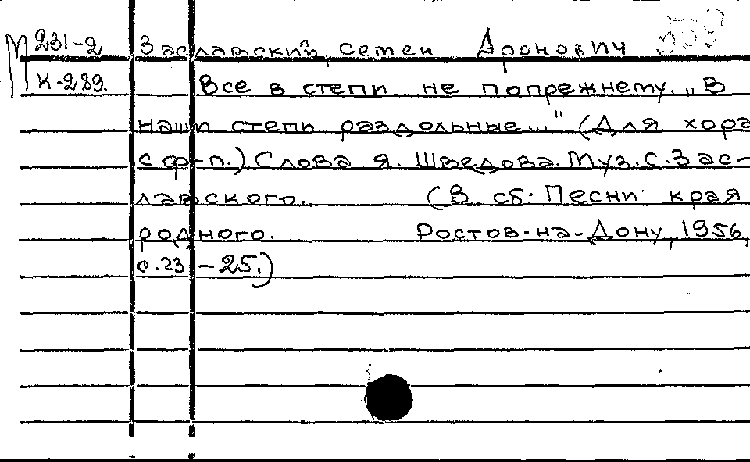 М 231-2 Заславский, Семен Аронович
К-289. Все в степи не попрежнему. „В
наши степи раздольные..." (Для хора
с ф-п.) Слова Я. Шведова. Муз. С. Зас-
лавского. (В сб. Песни края
родного. Ростов-на-Дону, 1956,
с. 23-25.)